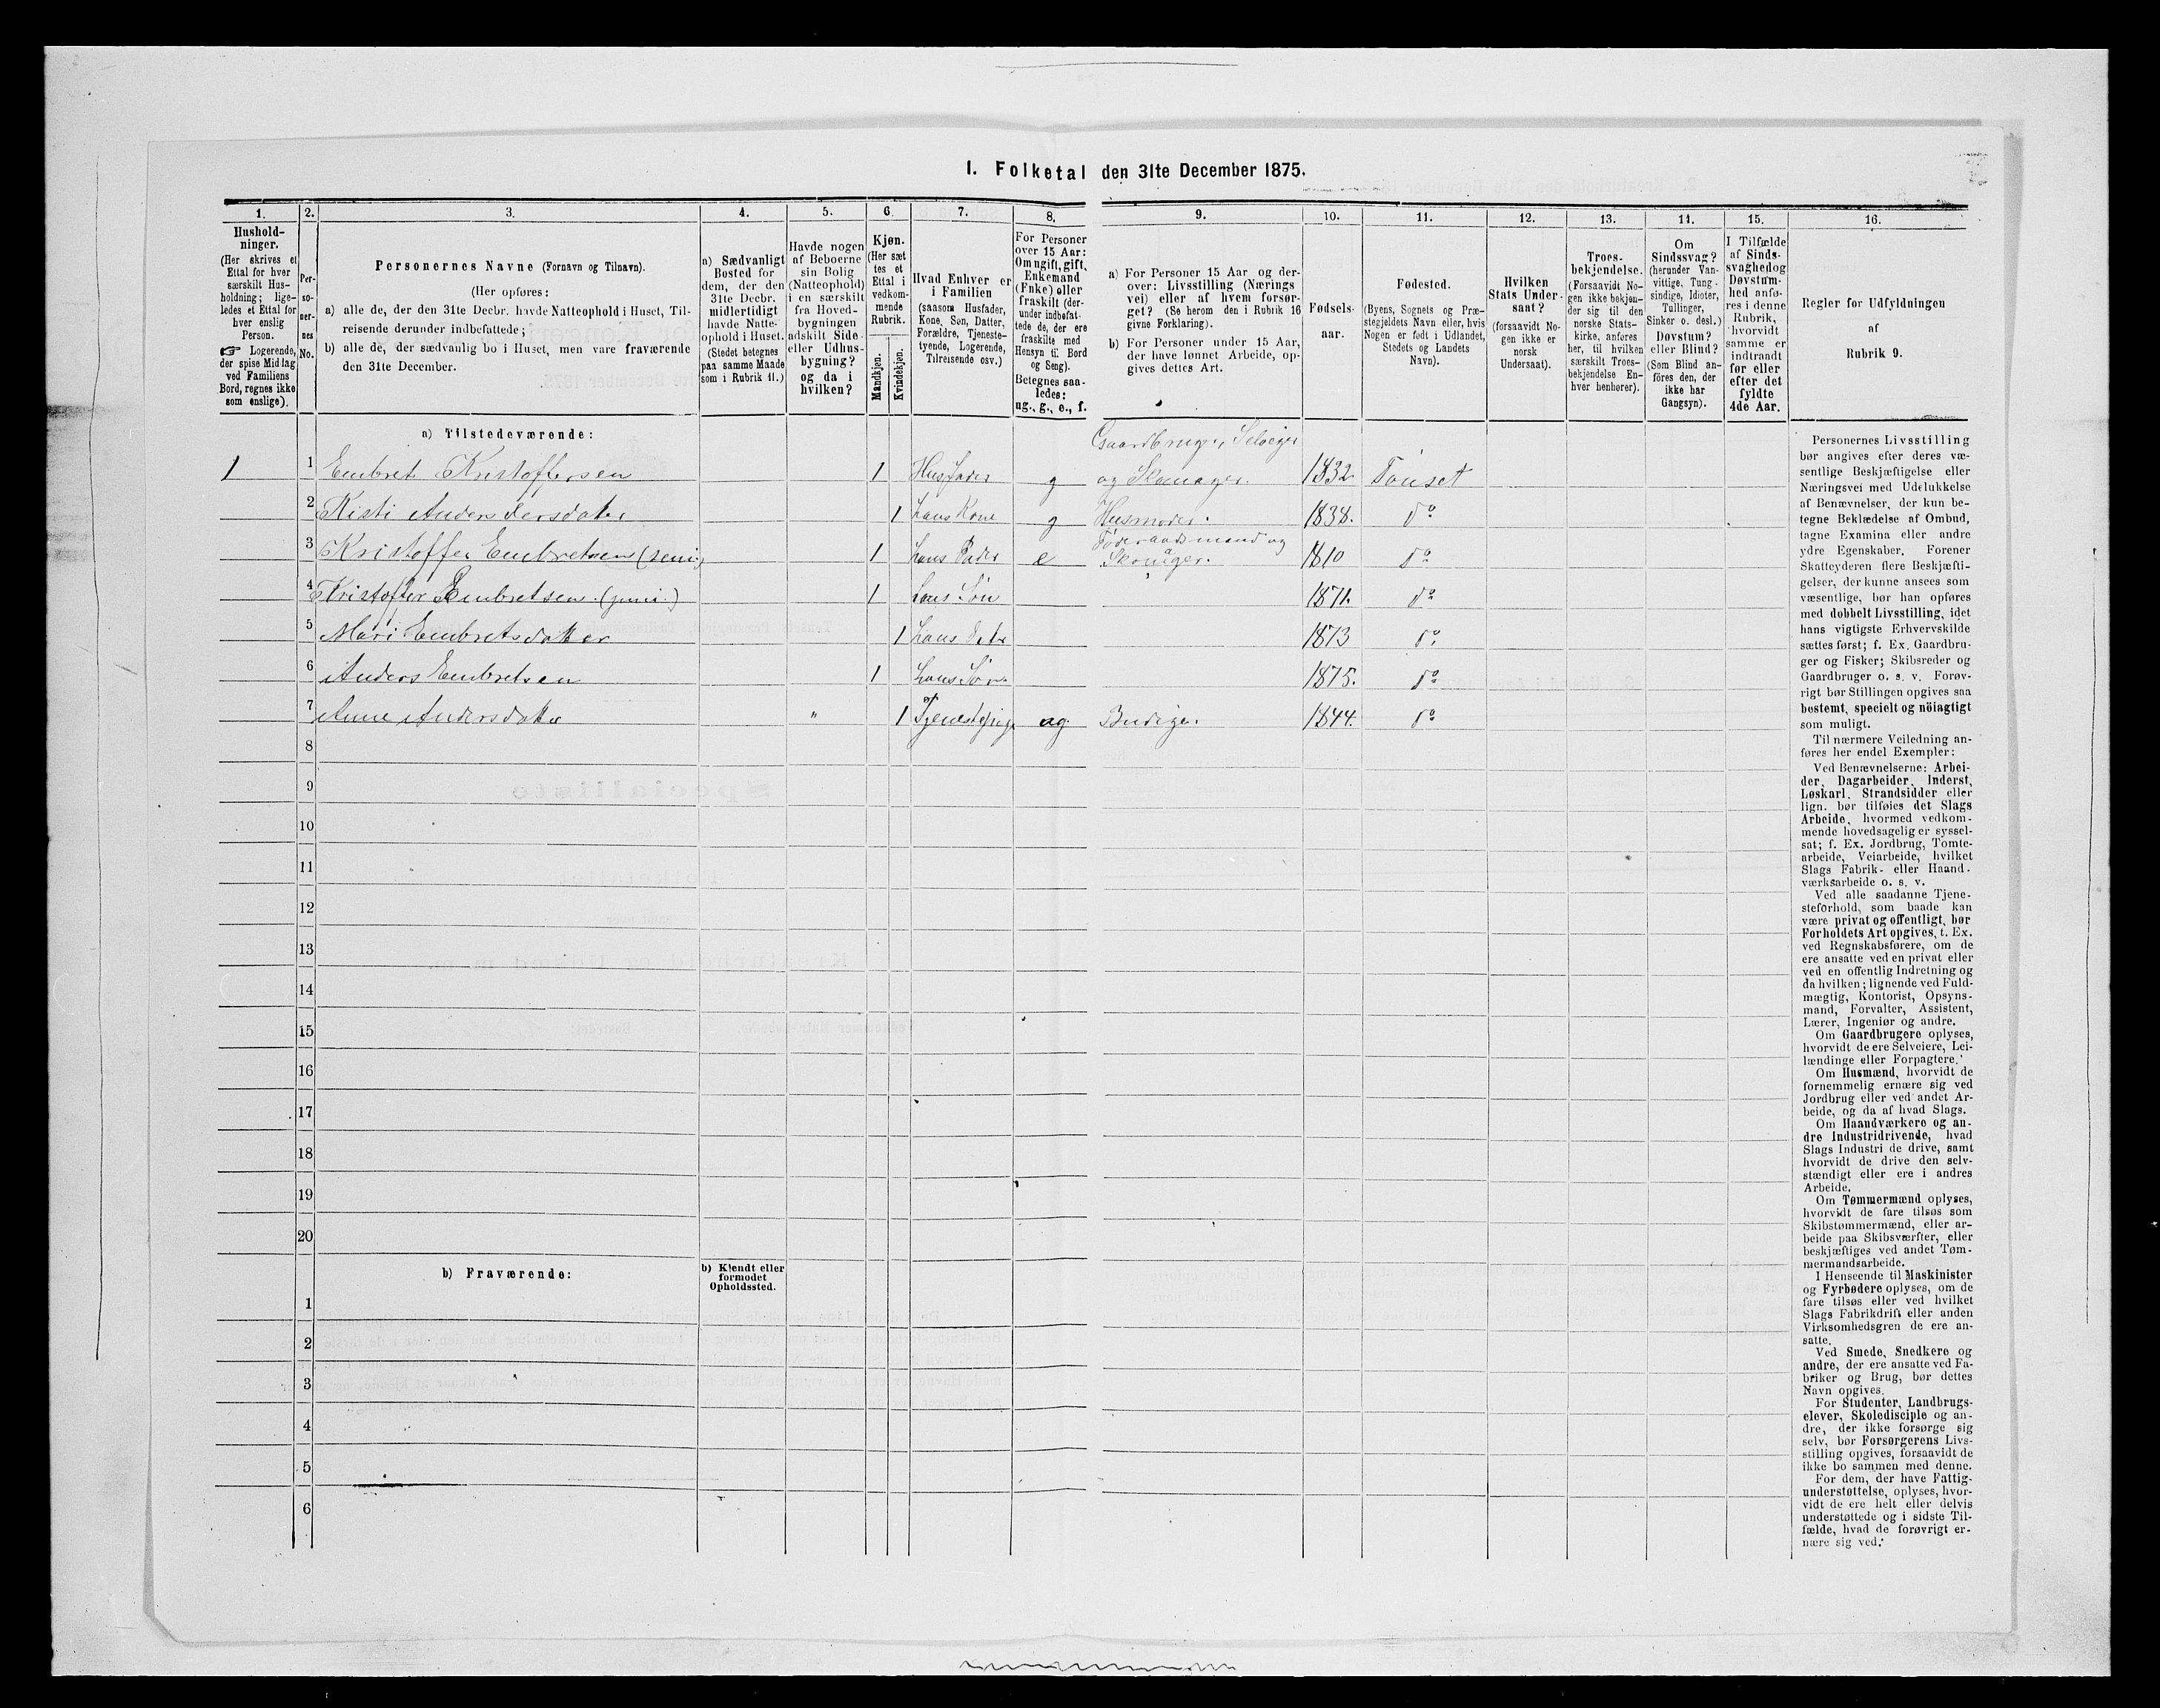 I. Folketal den 31te December 1875.
1. 2. 3. 4. 5. 6. 7. 8. 9. 10. 11. 12. 13. 14. 15. 16.
Hushold-
ninger.
(Her skrives et
Ettal for hver
særskilt Hus-
holdning; lige-
ledes et Ettal for
hver enslig
Person.
☞ Logerende,
der spise Middag
ved Familiens
Bord, regnes ikke
som enslige).
Per-
so-
ner-
nes
No.
Personernes Navne (Fornavn og Tilnavn).
(Her opføres:
a) alle de, der den 31te Decbr. havde Natteophold i Huset, Til-
reisende derunder indbefattede;
b) alle de, der sædvanlig bo i Huset, men vare fraværende
den 31te December.
a) Sædvanligt
Bosted for
dem, der den
31te Decbr.
midlertidigt
havde Natte-
ophold i Huset.
(Stedet betegnes
paa samme Maade
som i Rubrik 11.)
Havde nogen
af Beboerne
sin Bolig
(Natteophold)
i en særskilt
fra Hoved-
bygningen
adskilt Side-
eller Udhus-
bygning?
og da i
hvilken?
Kjøn.
(Her sæt
tes et
Ettal i
vedkom-
mende
Rubrik.
Mandkjøn.
Kvindekjøn.
Hvad Enhver er
i Familien
(saasom Husfader,
Kone, Søn, Datter,
Forældre, Tjeneste-
tyende, Logerende,
Tilreisende osv.)
For Personer
over 15 Aar:
Om ugift, gift,
Enkemand
(Enke) eller
fraskilt (der-
under indbefat-
tede de, der ere
fraskilte med
Hensyn til Bord
og Seng).
Betegnes saa-
ledes:
ug., g., e., f.
a) For Personer 15 Aar og der-
over: Livsstilling (Nærings
vei) eller af hvem forsør-
get? (Se herom den i Rubrik 16
givne Forklaring).
b) For Personer under 15 Aar,
der have lønnet Arbeide, op-
gives dettes Art.
Fødsels-
aar.
Fødested.
(Byens, Sognets og Præ-
stegjeldets Navn eller, hvis
Nogen er født i Udlandet,
Stedets og Landets
Navn).
Hvilken
Stats Under-
saat?
(forsaavidt No-
gen ikke er
norsk
Undersaat).
Troes-
bekjendelse.
(Forsaavidt No-
gen ikke bekjen-
der sig til den
norske Stats-
kirke, anføres
her, til hvilken
særskilt Troes-
bekjendelse En-
hver henhører).
Om
Sindssvag?
(herunder Van-
vittige, Tung-
sindige, Idioter,
Tullinger,
Sinker o. desl.)
Døvstum?
eller Blind?
(Som Blind an-
føres den, der
ikke har
Gangsyn).
I Tilfælde
af Sinds-
svaghed og
Døvstum-
hed anfø-
res i denne
Rubrik,
hvorvidt
samme er
indtraadt
før eller
efter det
fyldte
4de Aar.
Regler for Udfyldningen
af
Rubrik 9.
a) Tilstedeværende:
Gaardbruger, Selveier
1 1 Embret Kristoffersen 1 Husfader g og Skomager. 1832 Tønset
2 Kisti Andersdersdater 1 hans Kone g Husmoder. 1838. do
Føderaadsmand og
3 Kristoffer Embretsen (seni.) 1 hans Fader e Skomager. 1810 do
4 Kristoffer Embretsen. (juni.) 1 hans Søn 1871. do
5 Mari Embretsdatter 1 hans Datr 1873 do
6 Anders Embretsen 1 hans Søn. 1875. do
7 Anne Andersdatter " 1 Tjenestepige ug. Budeige. 1844. do
8
9
10
11
12
13
14
15
16
17
18
19
20
b) Fraværende:
b) Kjendt eller
formodet
Opholdssted.
1
2
3
4
5
6
Personernes Livsstilling
bør angives efter deres væ-
sentlige Beskjæftigelse eller
Næringsvei med Udelukkelse
af Benævnelser, der kun be-
tegne Beklædelse af Ombud,
tagne Examina eller andre
ydre Egenskaber. Forener
Skatteyderen flere Beskjæfti-
gelser, der kunne ansees som
væsentlige, bør han opføres
med dobbelt Livsstilling, idet
hans vigtigste Erhvervskilde
sættes først; f. Ex. Gaardbru-
ger og Fisker; Skibsreder og
Gaardbruger o. s. v. Forøv-
rigt bør Stillingen opgives saa
bestemt, specielt og nöiagtigt
som muligt.
Til nærmere Veiledning an-
føres her endel Exempler:
Ved Benævnelserne: Arbei-
der, Dagarbeider, Inderst,
Løskarl, Strandsidder eller
lign. bør tilføies det Slags
Arbeide, hvormed vedkom-
mende hovedsagelig er syssel-
sat; f. Ex. Jordbrug, Tomte-
arbeide, Veiarbeide, hvilket
Slags Fabrik- eller Haand-
værksarbeide o. s. v.
Ved alle saadanne Tjene-
steforhold, som baade kan
være privat og offentligt, bør
Forholdets Art opgives, t. Ex.
ved Regnskabsførere, om de
ere ansatte ved en privat eller
ved en offentlig Indretning og
da hvilken; lignende ved Fuld-
mægtig, Kontorist, Opsyns-
mand, Forvalter, Assistent,
Lærer, Ingeniør og andre.
Om Gaardbrugere oplyses,
hvorvidt de ere Selveiere, Lei-
lændinge eller Forpagtere.
Om Husmænd, hvorvidt de
fornemmelig ernære sig ved
Jordbrug eller ved andet Ar-
beide, og da af hvad Slags.
Om Haandværkere og an-
dre Industridrivende, hvad
Slags Industri de drive, samt
hvorvidt de drive den selv-
stændigt eller ere i andres
Arbeide.
Om Tømmermænd oplyses,
hvorvidt de fare tilsøs som
Skibstømmermænd, eller ar-
beide paa Skibsværfter, eller
beskjæftiges ved andet Tøm-
mermandsarbeide.
I Henseende til Maskinister
og Fyrbødere oplyses, om de
fare tilsøs eller ved hvilket
Slags Fabrikdrift eller anden
Virksomhedsgren de ere an-
satte.
Ved Smede, Snedkere og
andre, der ere ansatte ved Fa-
briker og Brug, bør dettes
Navn opgives.
For Studenter, Landbrugs-
elever, Skoledisciple og an-
dre, der ikke forsørge sig
selv, bør Forsørgerens Livs-
stilling opgives, forsaavidt de
ikke bo sammen med denne.
For dem, der have Fattig-
understøttelse, oplyses, hvor-
vidt de ere helt eller delvis
understøttede og i sidste Til-
fælde, hvad de forøvrigt er-
nære sig ved.